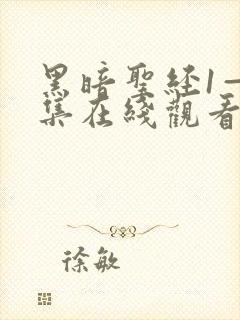 黑暗聖経1—
集在綫觀看
徐敏